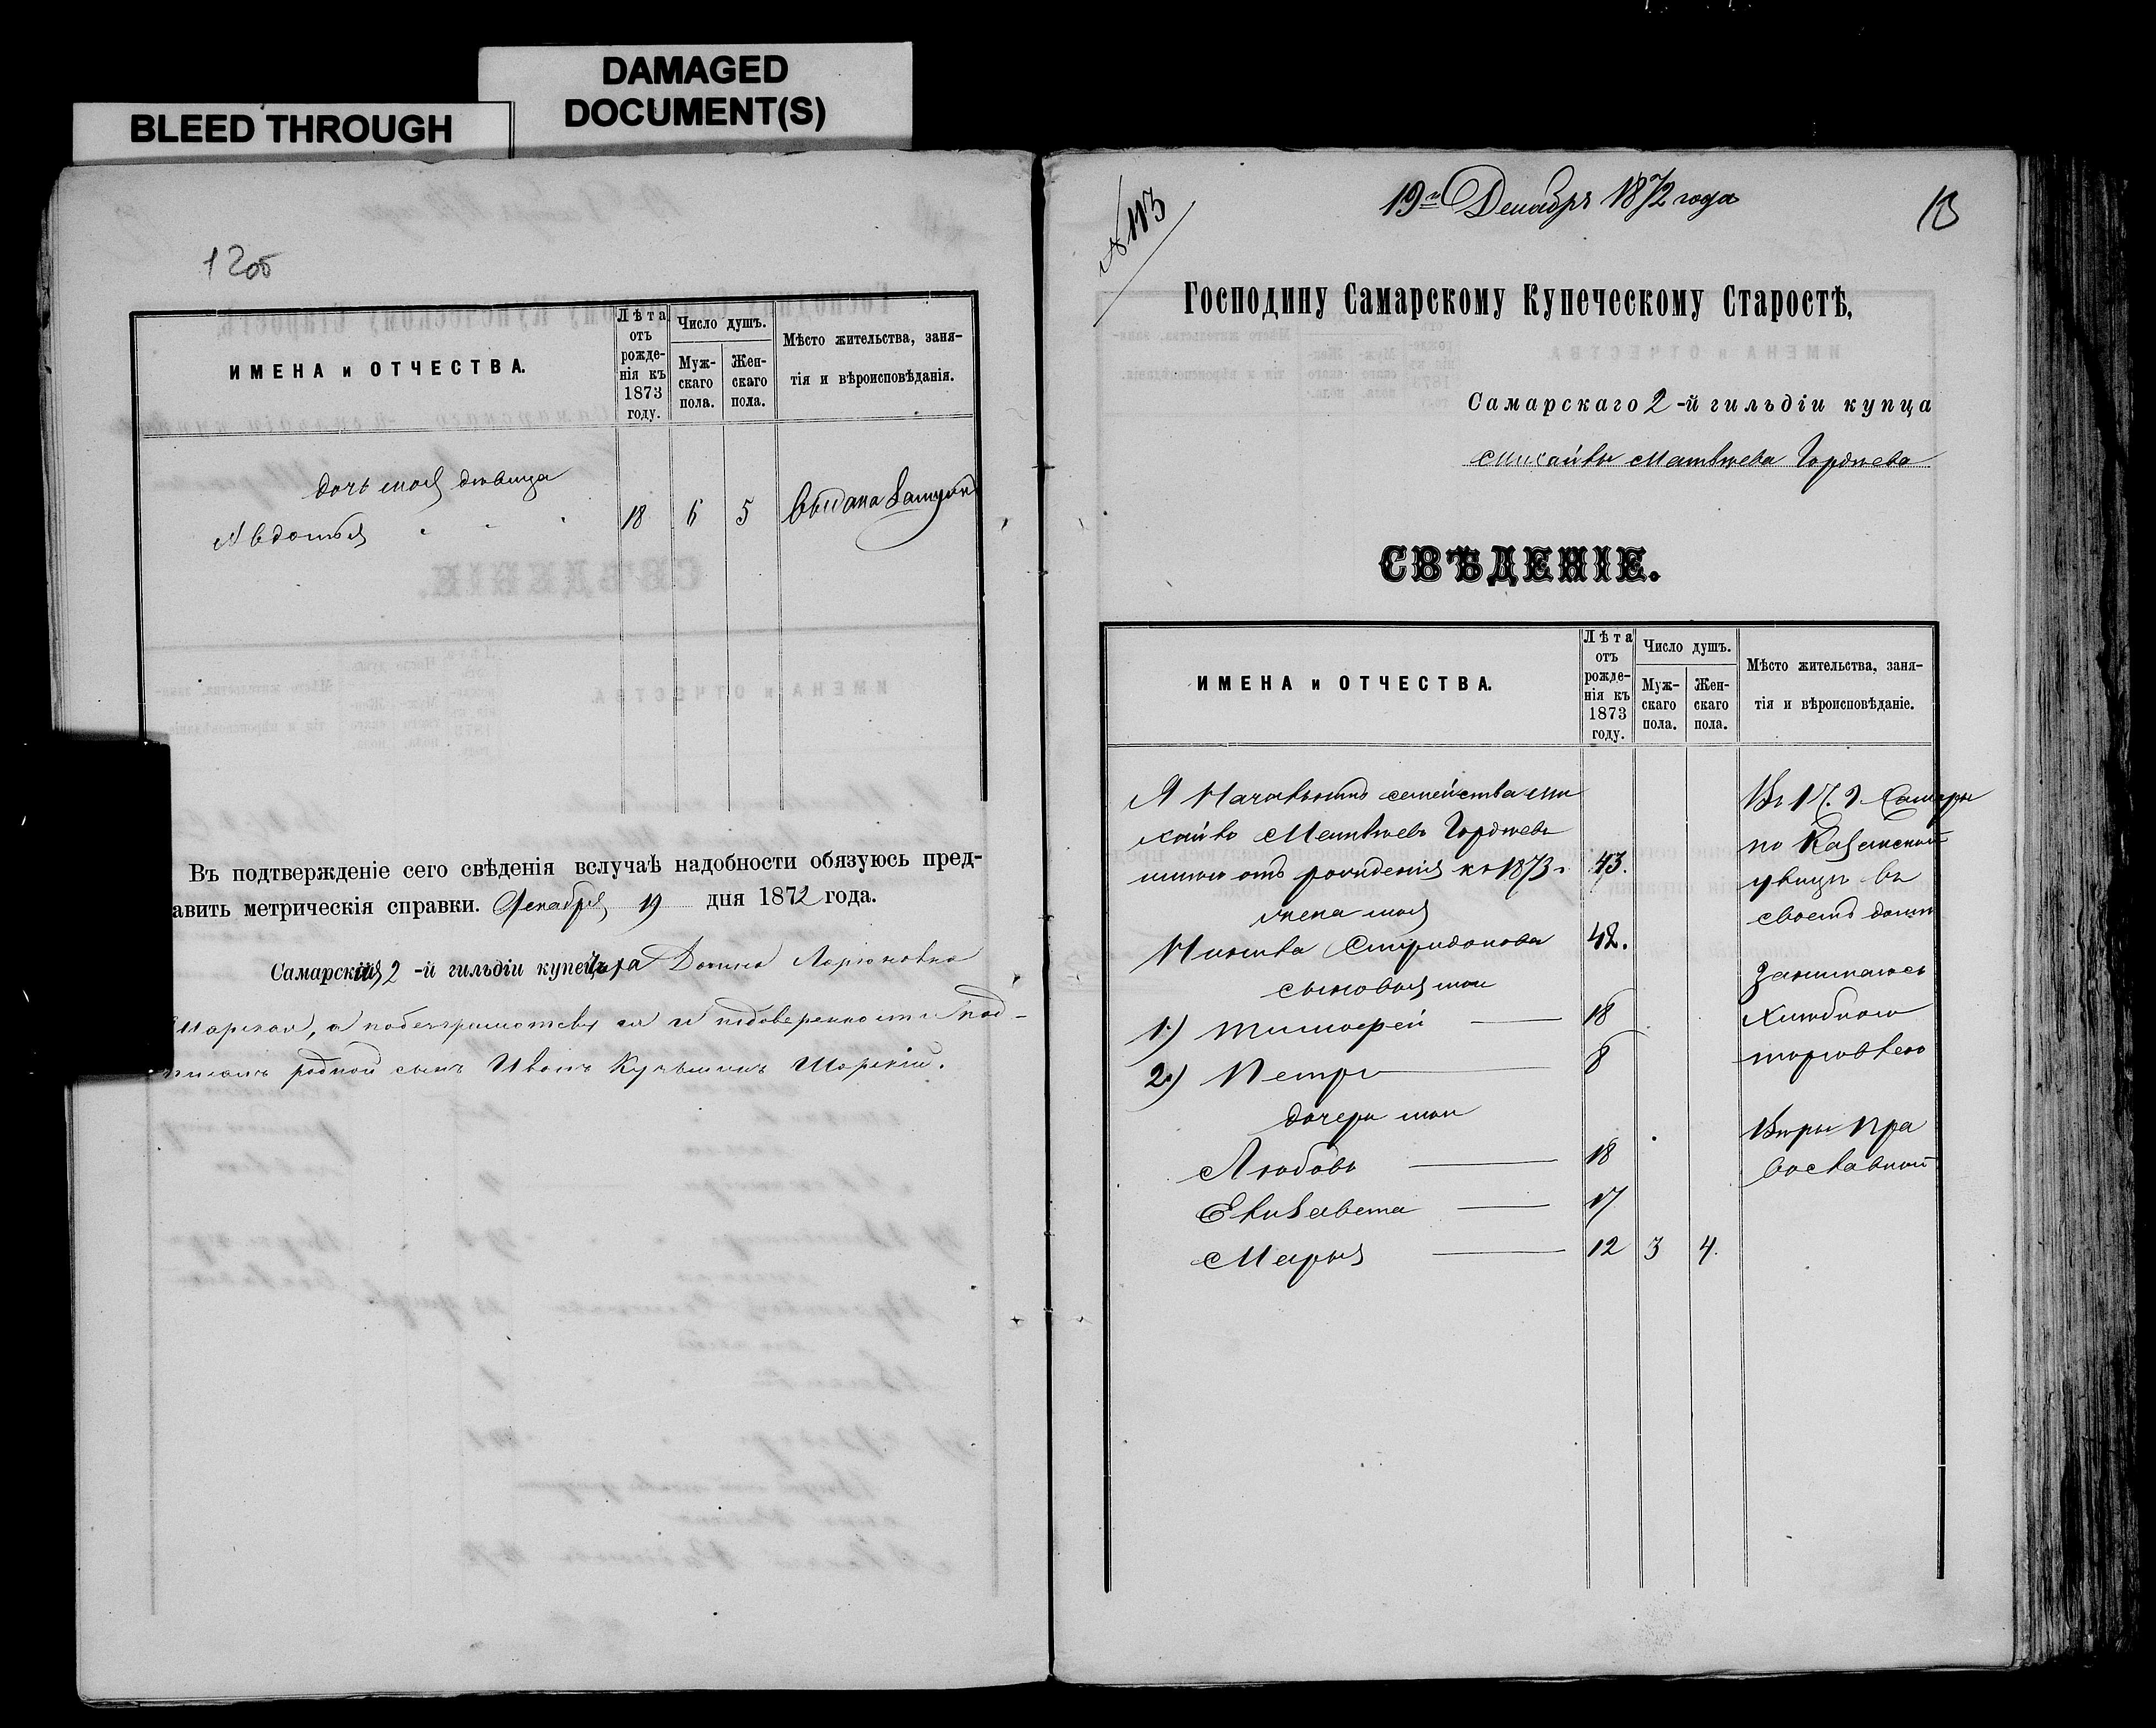 DAMAGED
DOCUMENT(S)
BLEED THROUGH
12об
ИМЕНА и ОТЧЕСТВА.
Лѣта отъ рожденія къ 1873 году.
Число душъ.
Мужскаго пола.
Женскаго пола.
Мѣсто жительства, занятія и вѣроисповѣданія.
дочь моя девица
Авдотья 18 6 5 Выдана Замужъ
Въ подтвержденіе сего свѣденія вслучаѣ надобности обязуюсь пред-
авить метрическія справки. Декабря 19 дня 1872 года.
Самарская 2-й гильдіи купец
Шорская, а по безграмотству ея и по доверенности под-
родной сынъ Иванъ Кузьминъ Шорскій.
№ 113
19го Декабря 1872 года
13
Господину Самарскому Купеческому Старостѣ,
Самарскаго 2-й гильдіи купца
Михайлы Матвѣева Гордѣева
СВѢДЕНІЕ.
ИМЕНА и ОТЧЕСТВА.
Лѣта отъ рожденія къ 1873 году.
Число душъ.
Мужскаго пола.
Женскаго пола.
Мѣсто жительства, занятія и вѣроисповѣданіе.
Я Начальникъ семейства Ми
хайло Матвѣевъ Гордѣевъ
мнѣ отъ рожденія къ 1873 г. 43.
жена моя
Спиридонова 42.
сыновья мои
1.) Тимофей 18
2.) Петръ 8
дочери мои
Любовь 18
Елизавета 17
Марья 12 3 4.
Въ 1 ч. г. Самары
по Казанской
улицѣ въ
своемъ домѣ
Занимаюсь
Хлѣбною
торговлею
Вѣры Пра
вославной